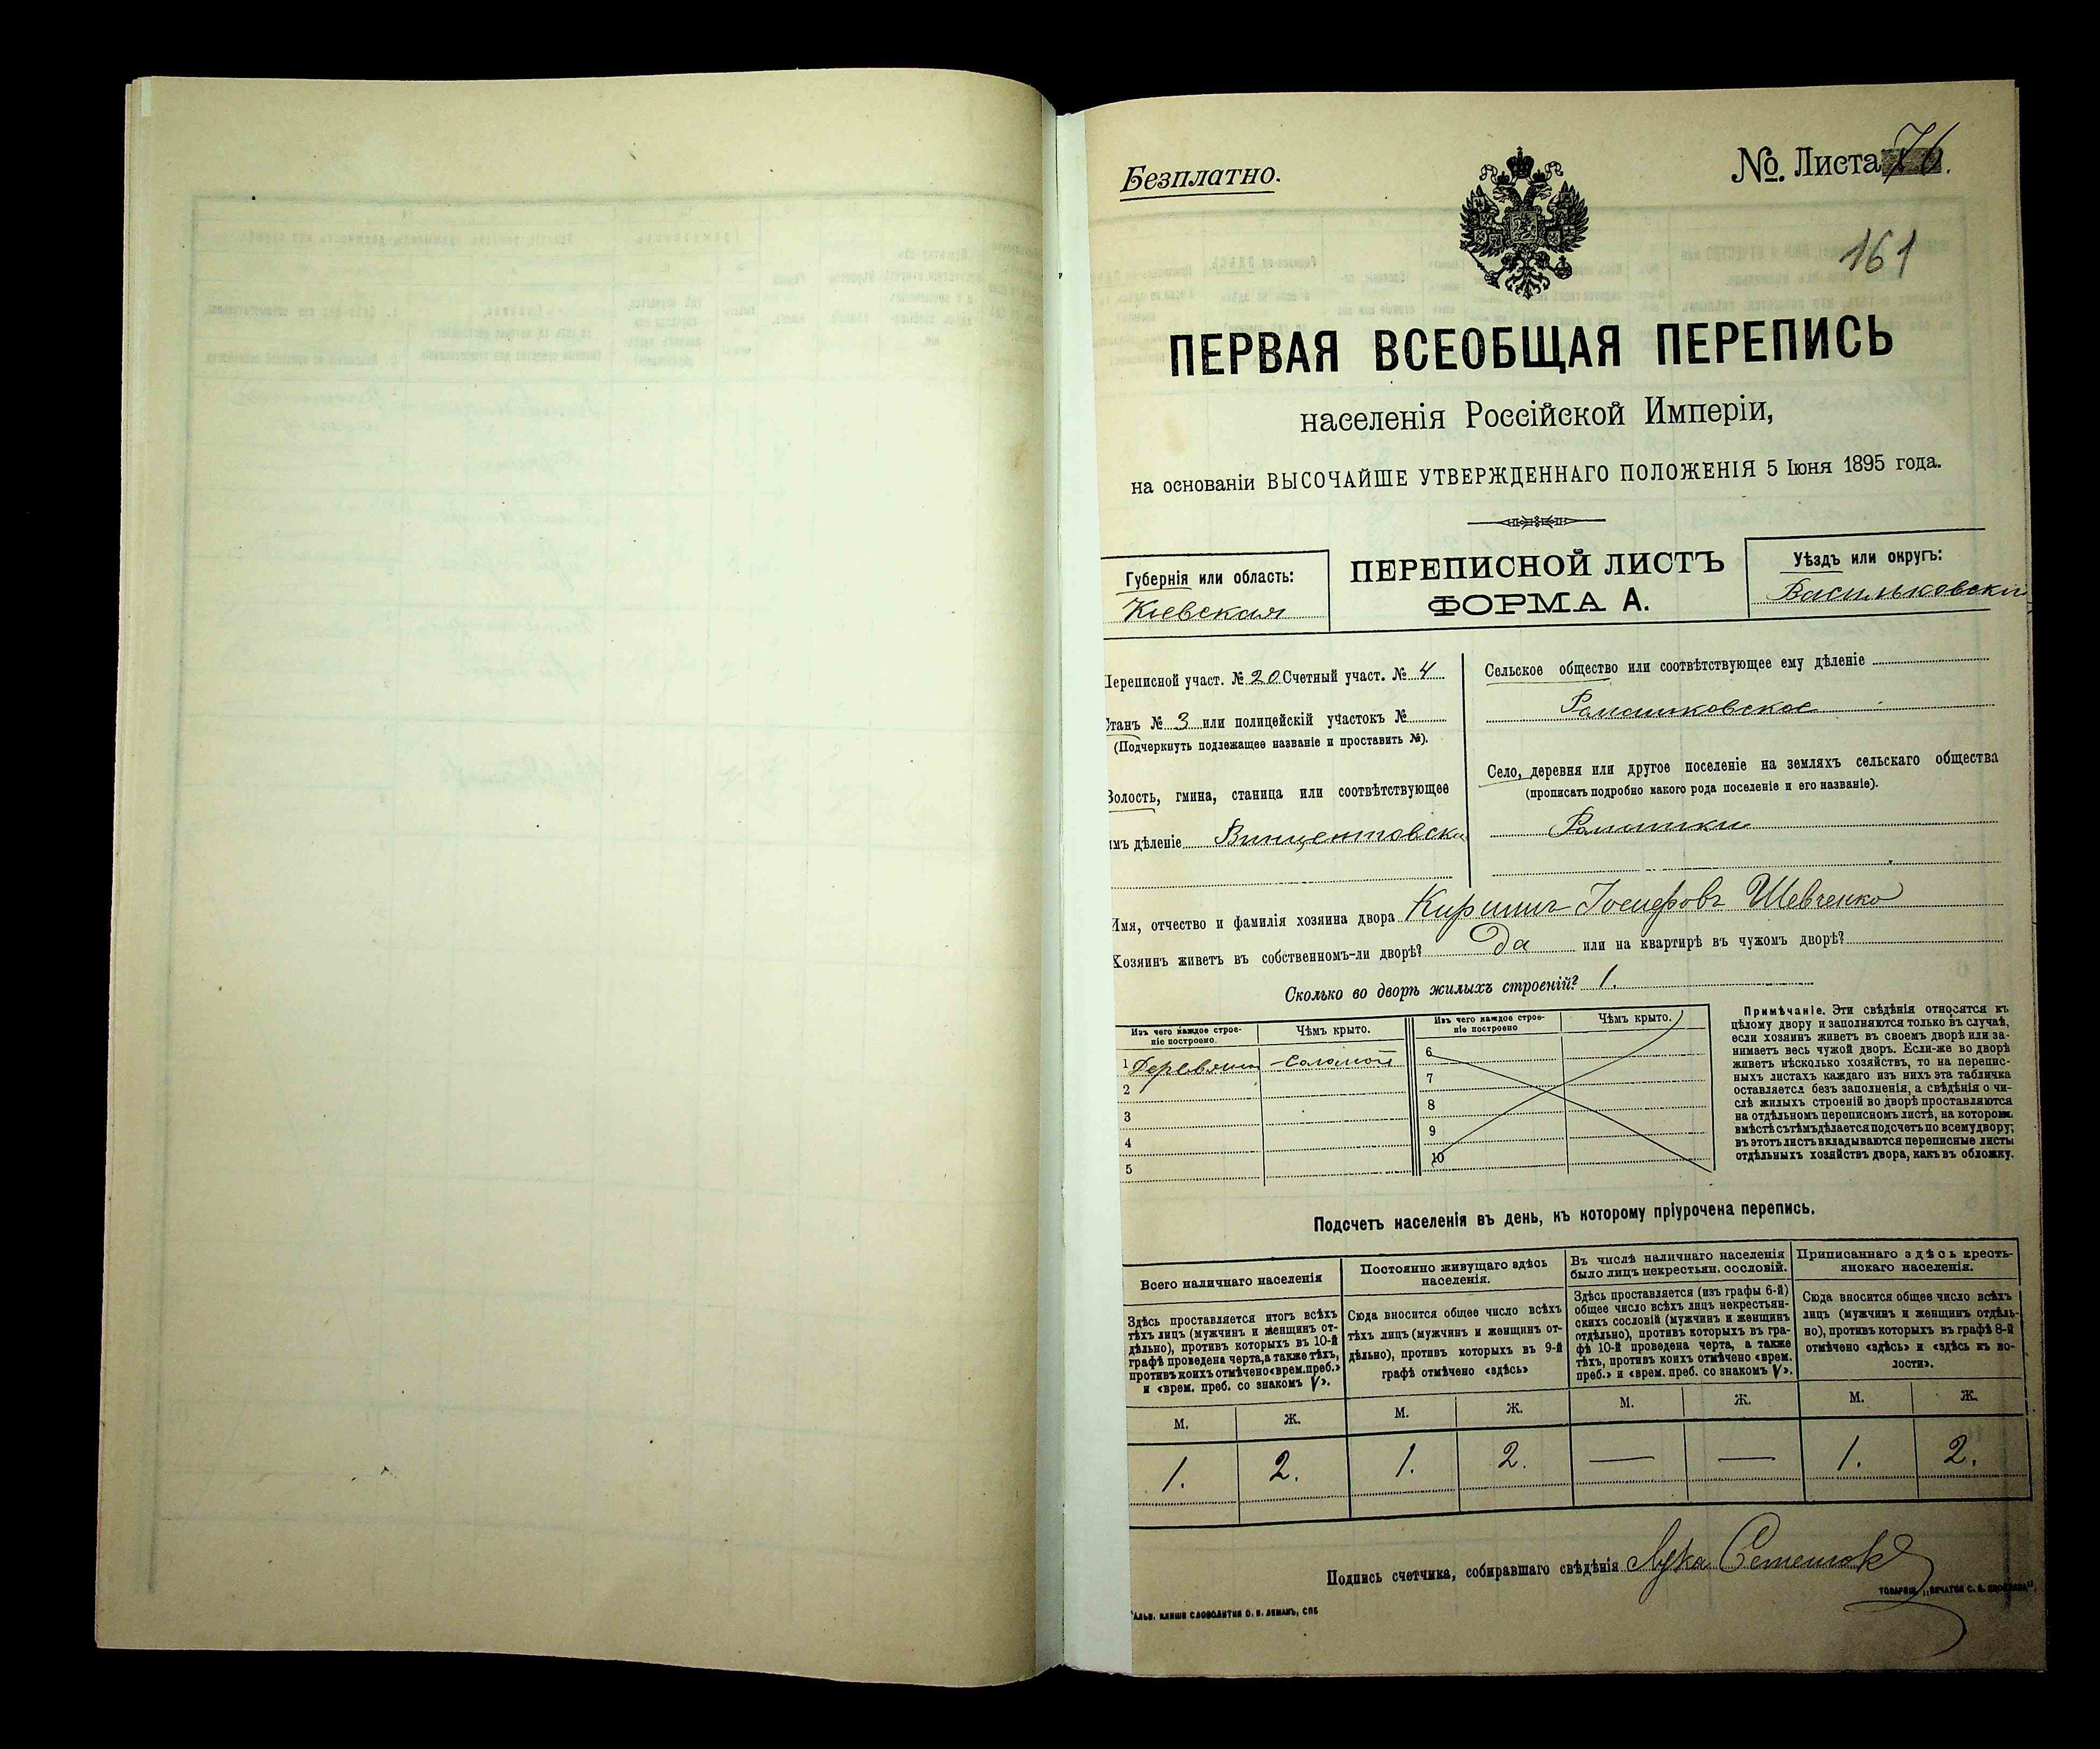 Безплатно.
№. Листа 76.
161
ПЕРВАЯ ВСЕОБЩАЯ ПЕРЕПИСЬ
населенія Россійской Имперіи,
на основаніи ВЫСОЧАЙШЕ УТВЕРЖДЕННАГО ПОЛОЖЕНІЯ 5 Іюня 1895 года.
Губернія или область:
Кіевская
ПЕРЕПИСНОЙ ЛИСТЪ
ФОРМА А.
Уѣздъ или округъ:
Васильковскій
Переписной участ. № 20 Счетный участ. № 4
Станъ № 3 или полицейскій участокъ №
(Подчеркнуть подлежащее названіе и проставить №).
Волость, гмина, станица или соотвѣтствующее
имъ дѣленіе Винцентовска
Сельское общество или соотвѣтствующее ему дѣленіе
Ромашковское
Село, деревня или другое поселеніе на земляхъ сельскаго общества
(прописать подробно какого рода поселеніе и его названіе).
Ромашки
Имя, отчество и фамилія хозяина двора Кирилъ Іосифовъ Шевченко
Хозяинъ живетъ въ собственномъ-ли дворѣ? Да или на квартирѣ въ чужомъ дворѣ?
Сколько во дворѣ жилыхъ строеній? 1.
Изъ чего каждое строе-
ніе построено.
Чѣмъ крыто.
Изъ чего каждое строе-
ніе построено
Чѣмъ крыто.
1 Деревянн Соломой 6
2 7
3 8
4 9
5 10
Примѣчаніе. Эти свѣдѣнія относятся къ
цѣлому двору и заполняются только въ случаѣ,
если хозяинъ живетъ въ своемъ дворѣ или за-
нимаетъ весь чужой дворъ. Если-же во дворѣ
живетъ нѣсколько хозяйствъ, то на перепис-
ныхъ листахъ каждаго изъ нихъ эта табличка
оставляется безъ заполненія, а свѣдѣнія о чи-
слѣ жилыхъ строеній во дворѣ проставляются
на отдѣльномъ переписномъ листѣ, на которомъ
вмѣстѣ съ тѣмъ дѣлается подсчетъ по всему двору;
въ этотъ листъ вкладываются переписные листы
отдѣльныхъ хозяйствъ двора, какъ въ обложку.
Подсчетъ населенія въ день, къ которому пріурочена перепись.
Всего наличнаго населенія
Здѣсь проставляется итогъ всѣхъ
тѣхъ лицъ (мужчинъ и женщинъ от-
дѣльно), противъ которыхъ въ 10-й
графѣ проведена черта, а также тѣхъ,
противъ коихъ отмѣчено «врем. преб.»
и «врем. преб. со знакомъ V».
Постоянно живущаго здѣсь
населенія.
Сюда вносится общее число всѣхъ
тѣхъ лицъ (мужчинъ и женщинъ от-
дѣльно), противъ которыхъ въ 9-й
графѣ отмѣчено «здѣсь»
Въ числѣ наличнаго населенія
было лицъ некрестьян. сословій.
Здѣсь проставляется (изъ графы 6-й)
общее число всѣхъ лицъ некрестьян-
скихъ сословій (мужчинъ и женщинъ
отдѣльно), противъ которыхъ въ гра-
фѣ 10-й проведена черта, а также
тѣхъ, противъ коихъ отмѣчено «врем.
преб.» и «врем. преб. со знакомъ V».
Приписаннаго здѣсь кресть-
янскаго населенія.
Сюда вносится общее число всѣхъ
лицъ (мужчинъ и женщинъ отдѣль-
но), противъ которыхъ въ графѣ 8-й
отмѣчено «здѣсь» и «здѣсь къ во-
лости».
М. Ж. М. Ж. М. Ж. М. Ж.
1. 2. 1. 2. — — 1. 2.
Подпись счетчика, собиравшаго свѣдѣнія Лука
ТОВАРИЩ. „ПЕЧАТНЯ С. П. ЯКОВЛЕВА“.
ГАЛЬВ. КЛИШЕ СЛОВОЛИТНИ О. И. ЛЕМАНЪ, СПБ